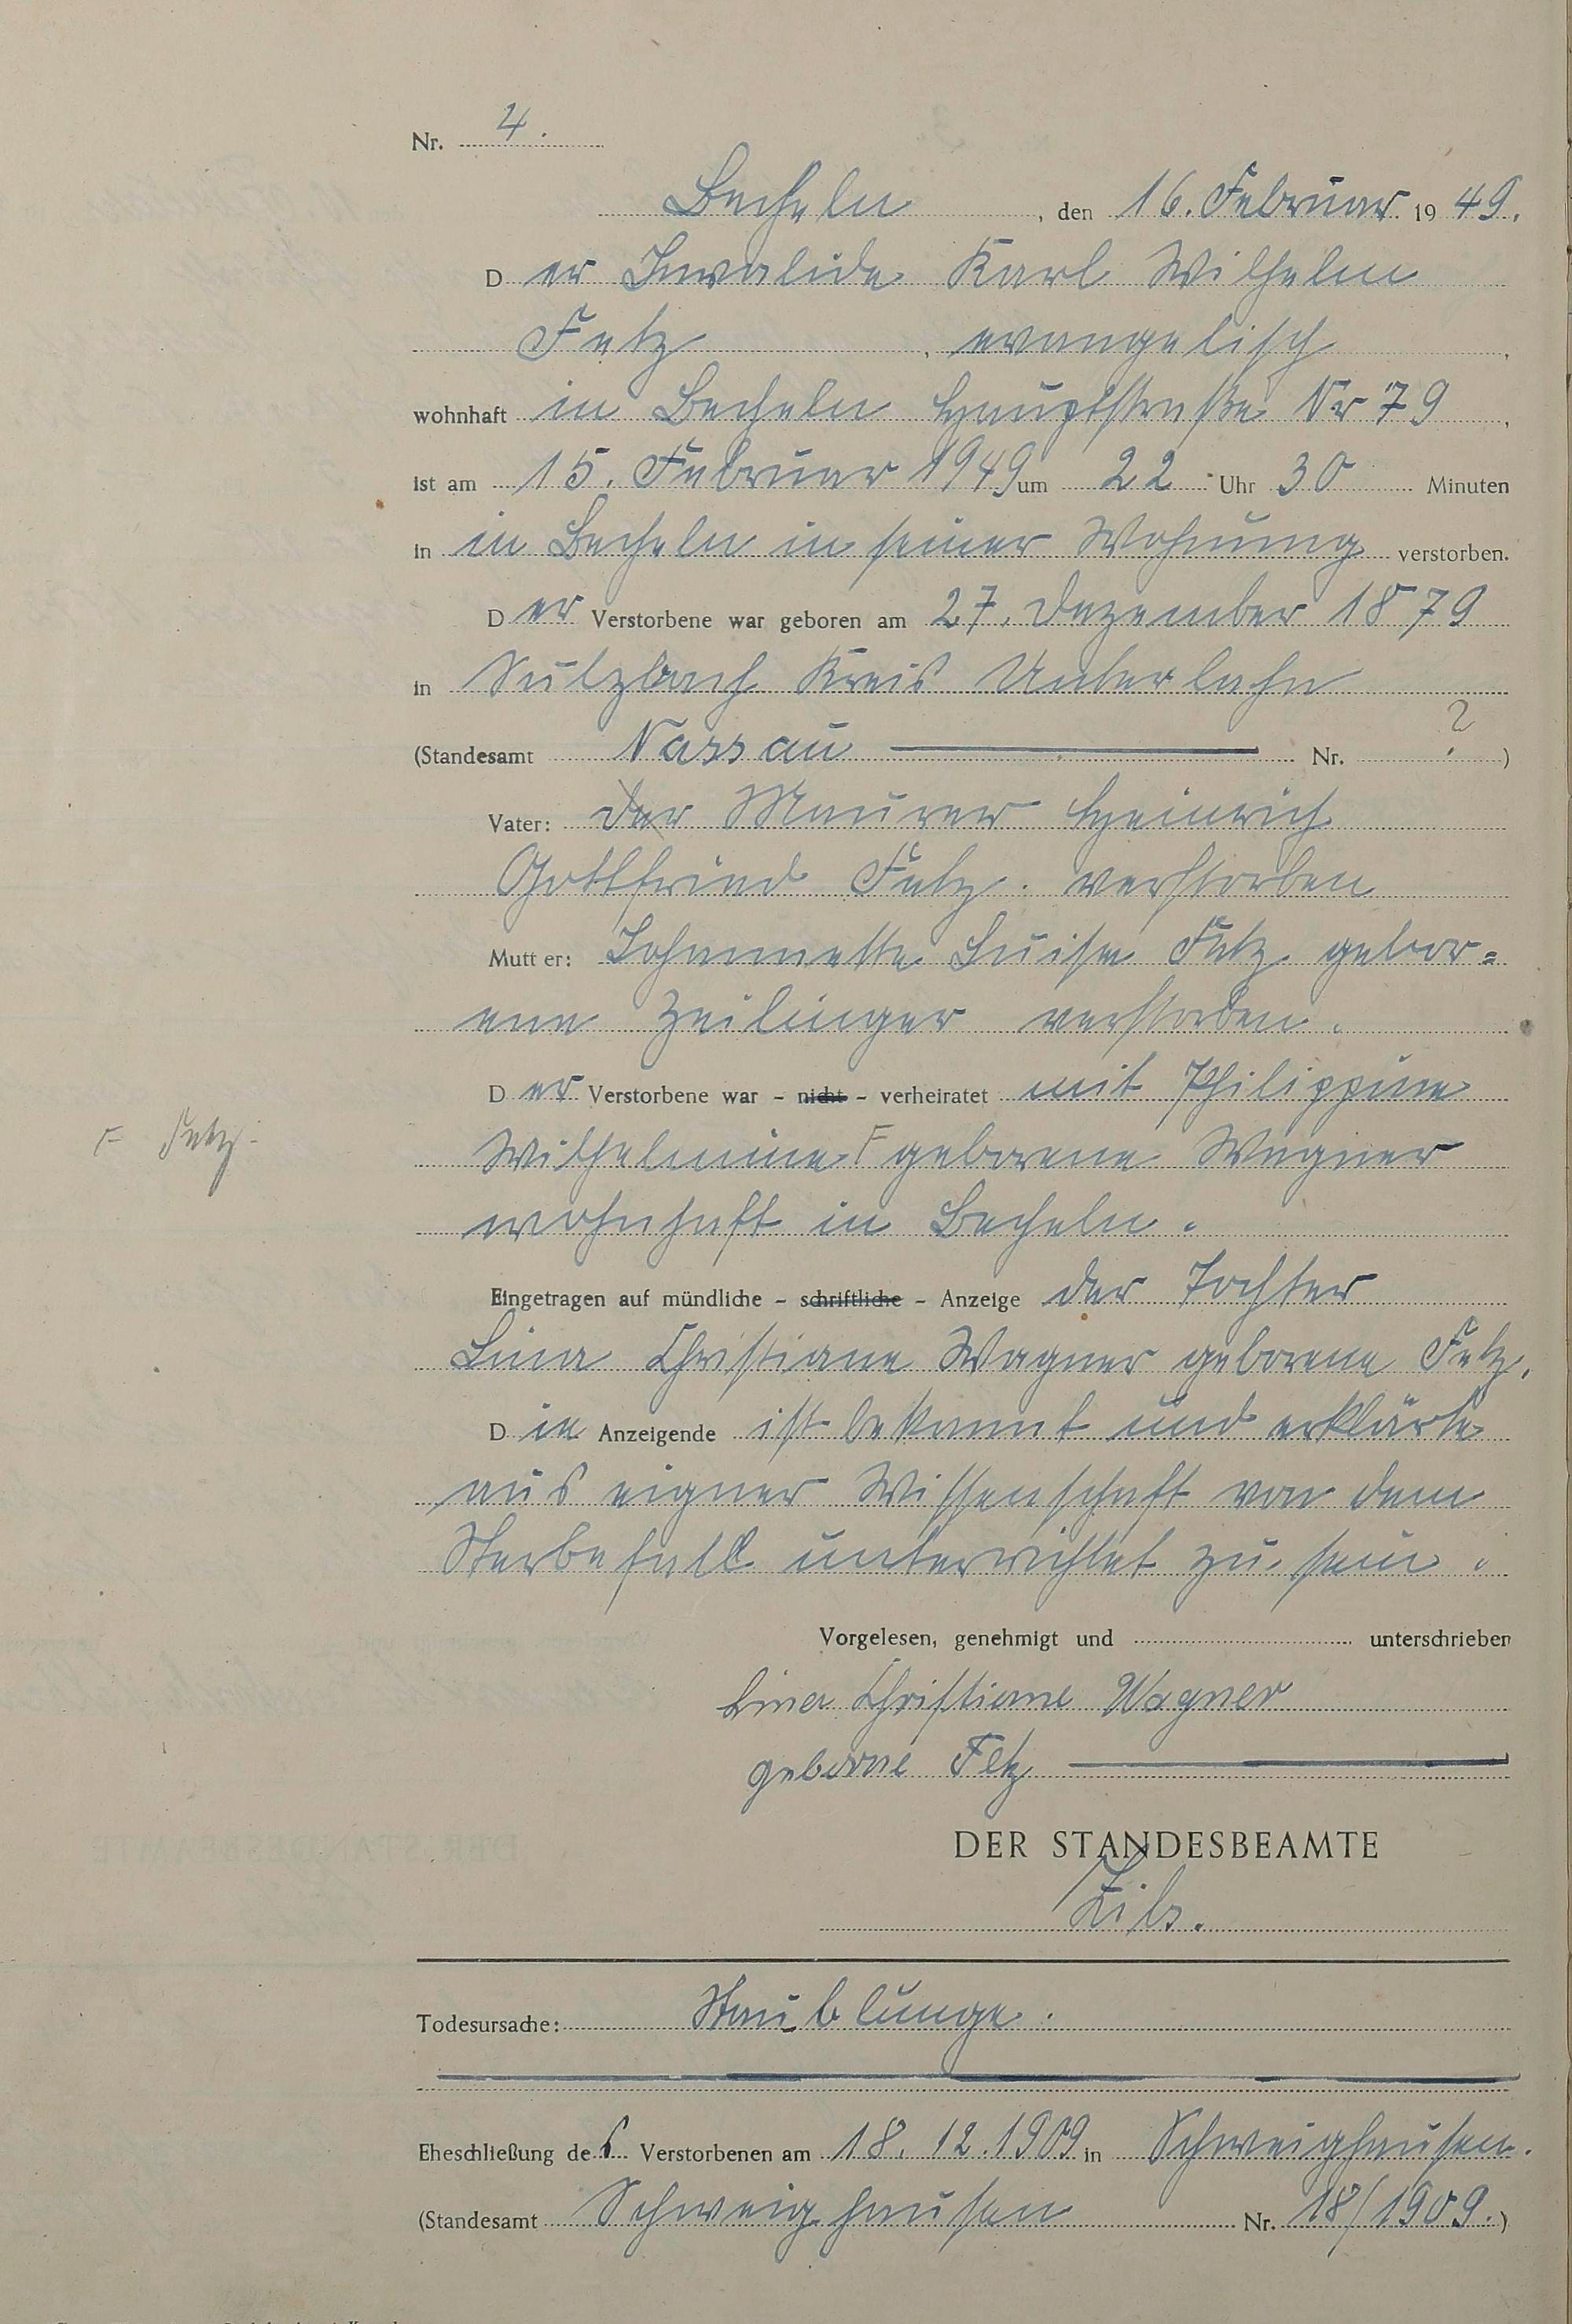 Nr. 4.
Becheln, den 16. Februar 1949.
Der Invalide Karl Wilhelm
Fetz, evangelisch,
wohnhaft in Becheln Hauptstraße Nr 79,
ist am 15. Februar 1949 um 22 Uhr 30 Minuten
in in Becheln in seiner Wohnung verstorben.
Der Verstorbene war geboren am 27. Dezember 1879
in Sulzbach Kreis Unterlahn
(Standesamt Nassau Nr. ?)
Vater: Der Maurer Heinrich
Gottfried Fetz. verstorben
Mutter: Johannette Luise Fetz gebor=
ene Zeilinger verstorben.
Der Verstorbene war - nicht - verheiratet mit Philippine
Wilhelmine F geborene Wagner
F Fetz.
wohnhaft in Becheln.
Eingetragen auf mündliche - schriftliche - Anzeige der Tochter
Lina Christiane Wagner geborene Fetz.
Die Anzeigende ist bekannt und erklärte
aus eigner Wissenschaft von dem
Sterbefall unterrichtet zu sein.
Vorgelesen, genehmigt und unterschrieben
Lina Christiane Wagner
geborne Fetz
DER STANDESBEAMTE
Todesursache: Staublunge.
Eheschließung des Verstorbenen am 18.12.1909 in Schweighausen.
(Standesamt Schweighausen Nr. 18/1909.)